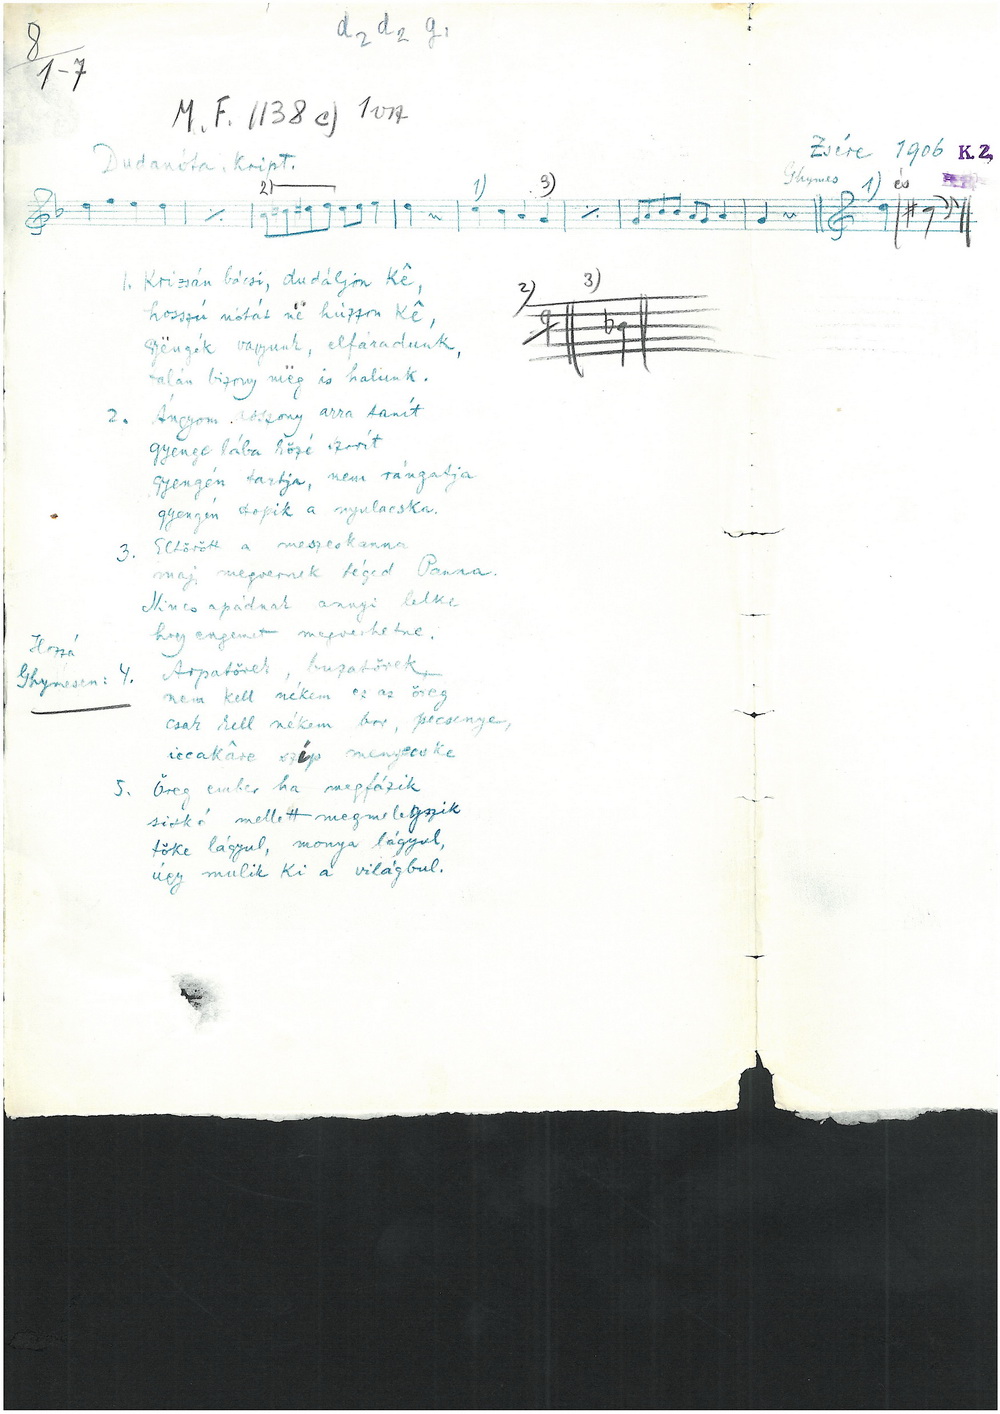 d₂ d₂ g₁
8
1-7
M. F. 1138 c)
Dudanóta. Kript.
Zsére 1906 K. Z.
Ghymes 1) és
2) 1) 3)
2) 3)
1. Krizsán bácsi, dudáljon Kê,
hosszú nótát në húzzon Kê,
gyëngék vagyunk, elfáradunk,
talán bizony mëg is halunk.
2. Ángyom asszony arra tanít
gyenge lába közé szorít
gyengén tartja, nem rángatja
gyengén szopik a nyulacska.
3. Eltörött a meszeskanna
maj megvernek téged Panna.
Nincs apádnak annyi lelke
hogy engemet megverhetne.
Hozzá
Ghymesen: 4. Árpatörek, buzatörek
nem kell nékem ez az öreg
csak kell nékem bor, pecsenye,
iccakâre szép menyecske
5. Öreg ember ha megfázik
siskó mellett megmelegszik
töke lágyul, monya lágyul,
úgy mulik ki a világbul.